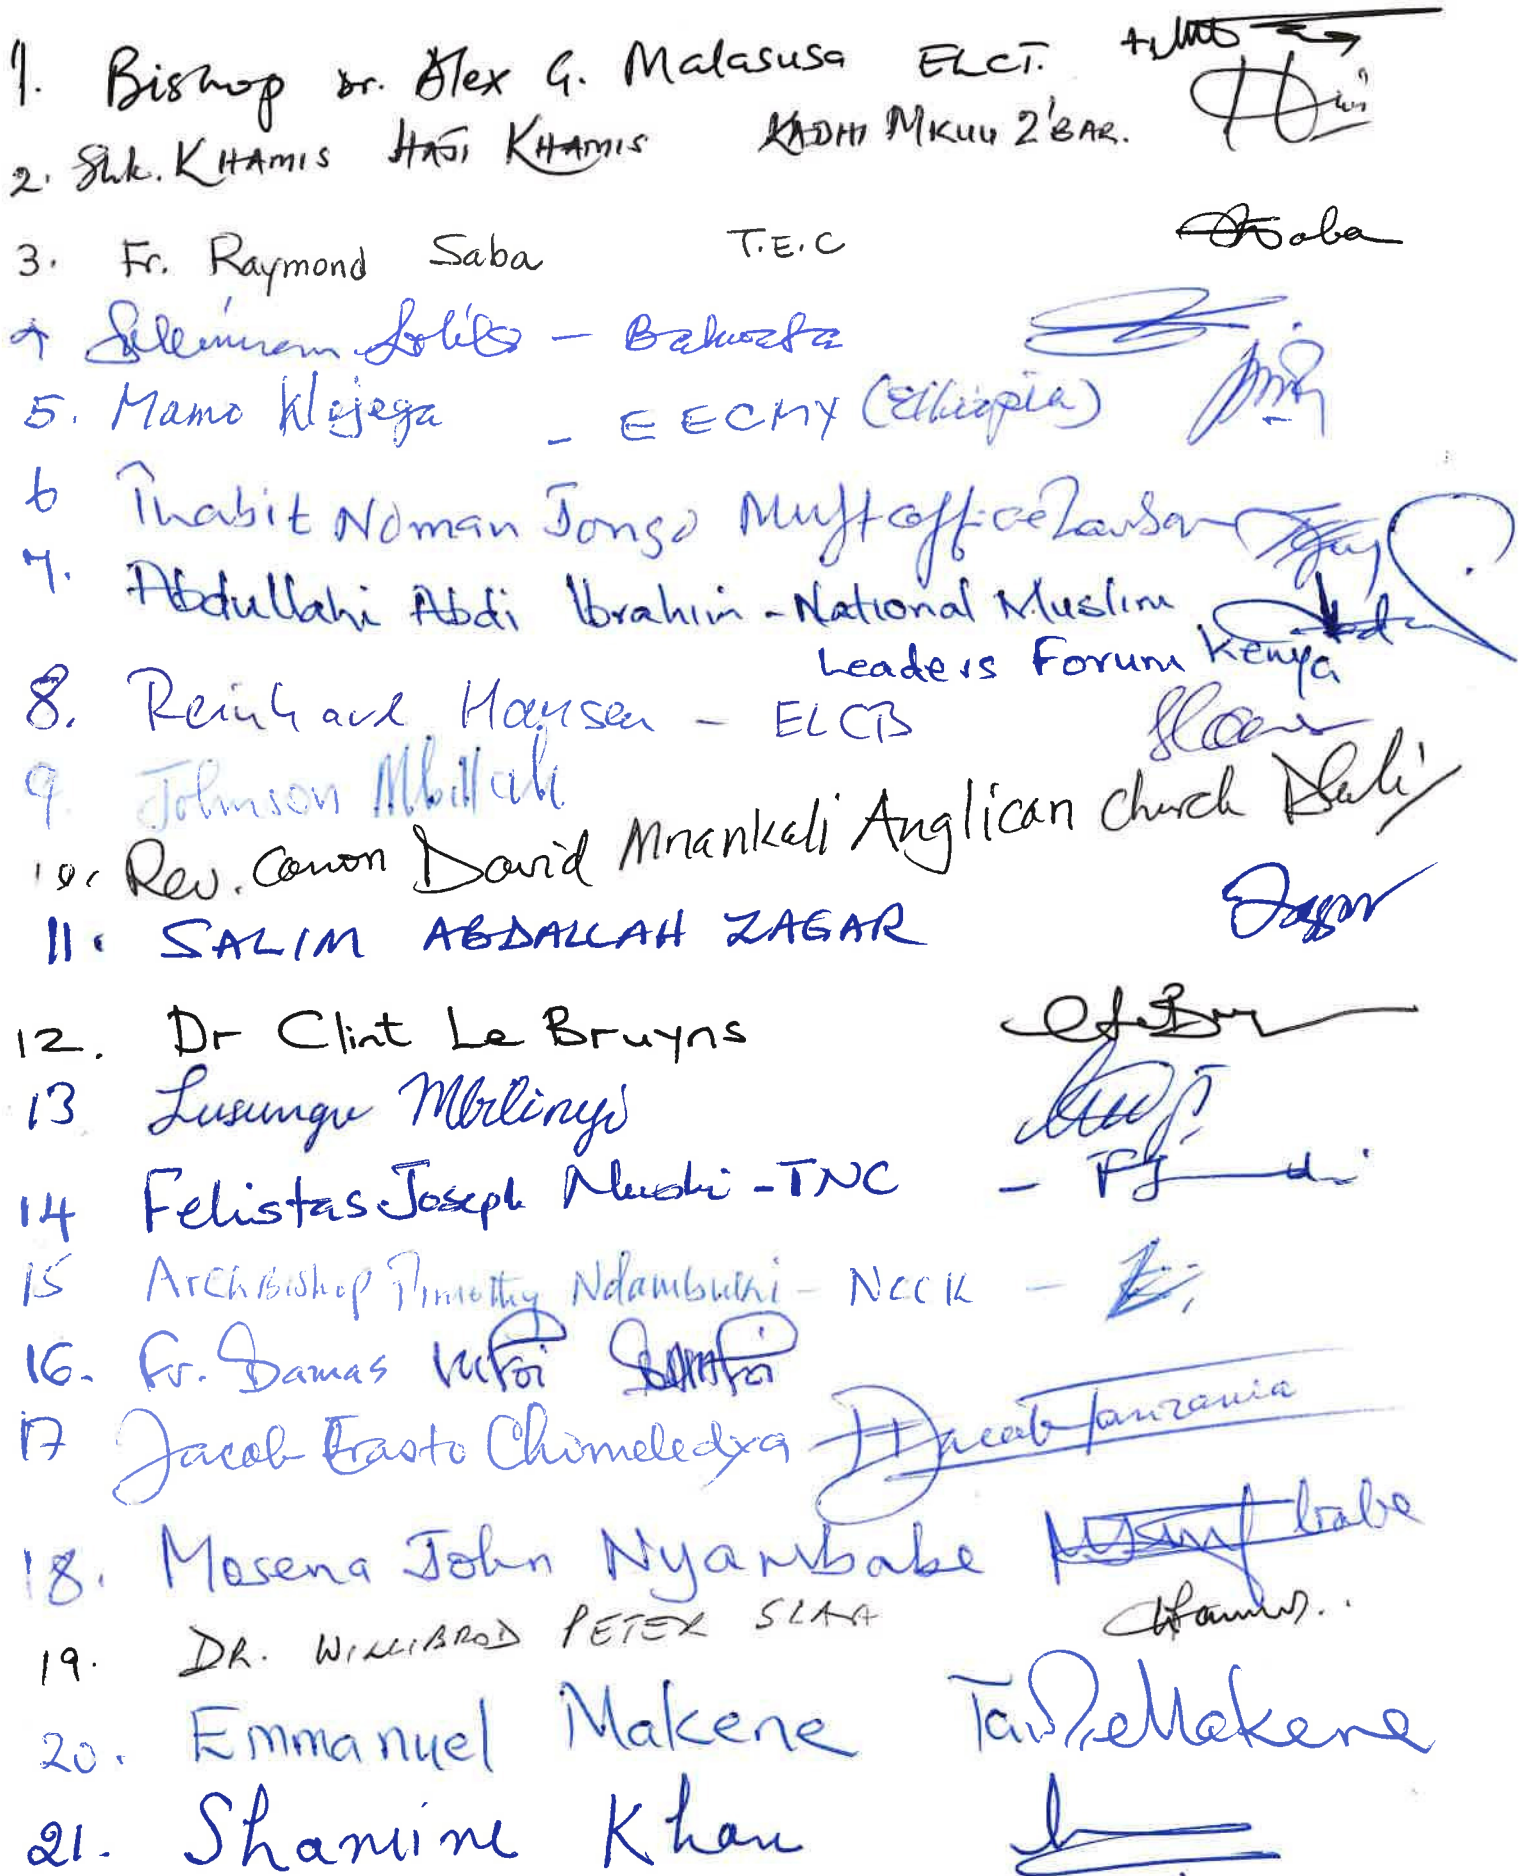 1. Bishop Dr. Alex G. Malasusa ELCT.
2. Shk. KHAMIS HAJI KHAMIS KADHI MKUU Z'BAR.
3. Fr. Raymond Saba T.E.C Saba
Suleiman Lolila - Bakwata
5. Mamo - EECMY (Ethiopia)
6 Thabit Noman Jongo Mufti office
7. Abdullahi Abdi Ibrahim - National Muslim
Leaders Forum Kenya
8. Reinhard Hansen - ELCB
9. Johnson Mbillah
10. Rev. Canon David Mnankali Anglican Church
11. SALIM ABDALLAH ZAGAR
12. Dr Clint Le Bruyns
13 Lusungu Mbilinyi
14 Felistas Joseph - TNC -
15 ArchBishop Timothy Ndambuki - NCCK -
16. Fr. Damas Mfoi
17 Jacob Erasto Chimeledya Jacob Tanzania
18. Mosena John Nyambabe
19. DR. WILLIBROD PETER SLAA
20. Emmanuel Makene Makene
21. Shamine Khan